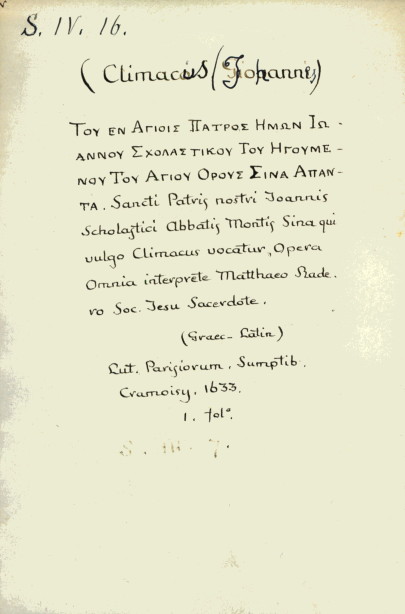 S. IV. 16.
(Climacus (Johannes)
ΤΟΥ ΕΝ ΑΓΙΟΙΣ ΠΑΤΡΟΣ ΗΜΩΝ ΙΩ-
ΑΝΝΟΥ ΣΧΟΛΑΣΤΙΚΟΥ ΤΟΥ ΗΓΟΥΜΕ-
ΝΟΥ ΤΟΥ ΑΓΙΟΥ ΟΡΟΥΣ ΣΙΝΑ ΑΠΑΝ-
ΤΑ. Sancti Patris nostri Joannis
Scholastici Abbatis Montis Sina qui
vulgo Climacus vocatur, Opera
Omnia interprete Matthaeo Rade.
ro Soc. Jesu Sacerdote.
(Graec- Latin)
Lut. Parisiorum, Sumptib.
Cramoisy, 1633.
1. folº.
S. III. 7.